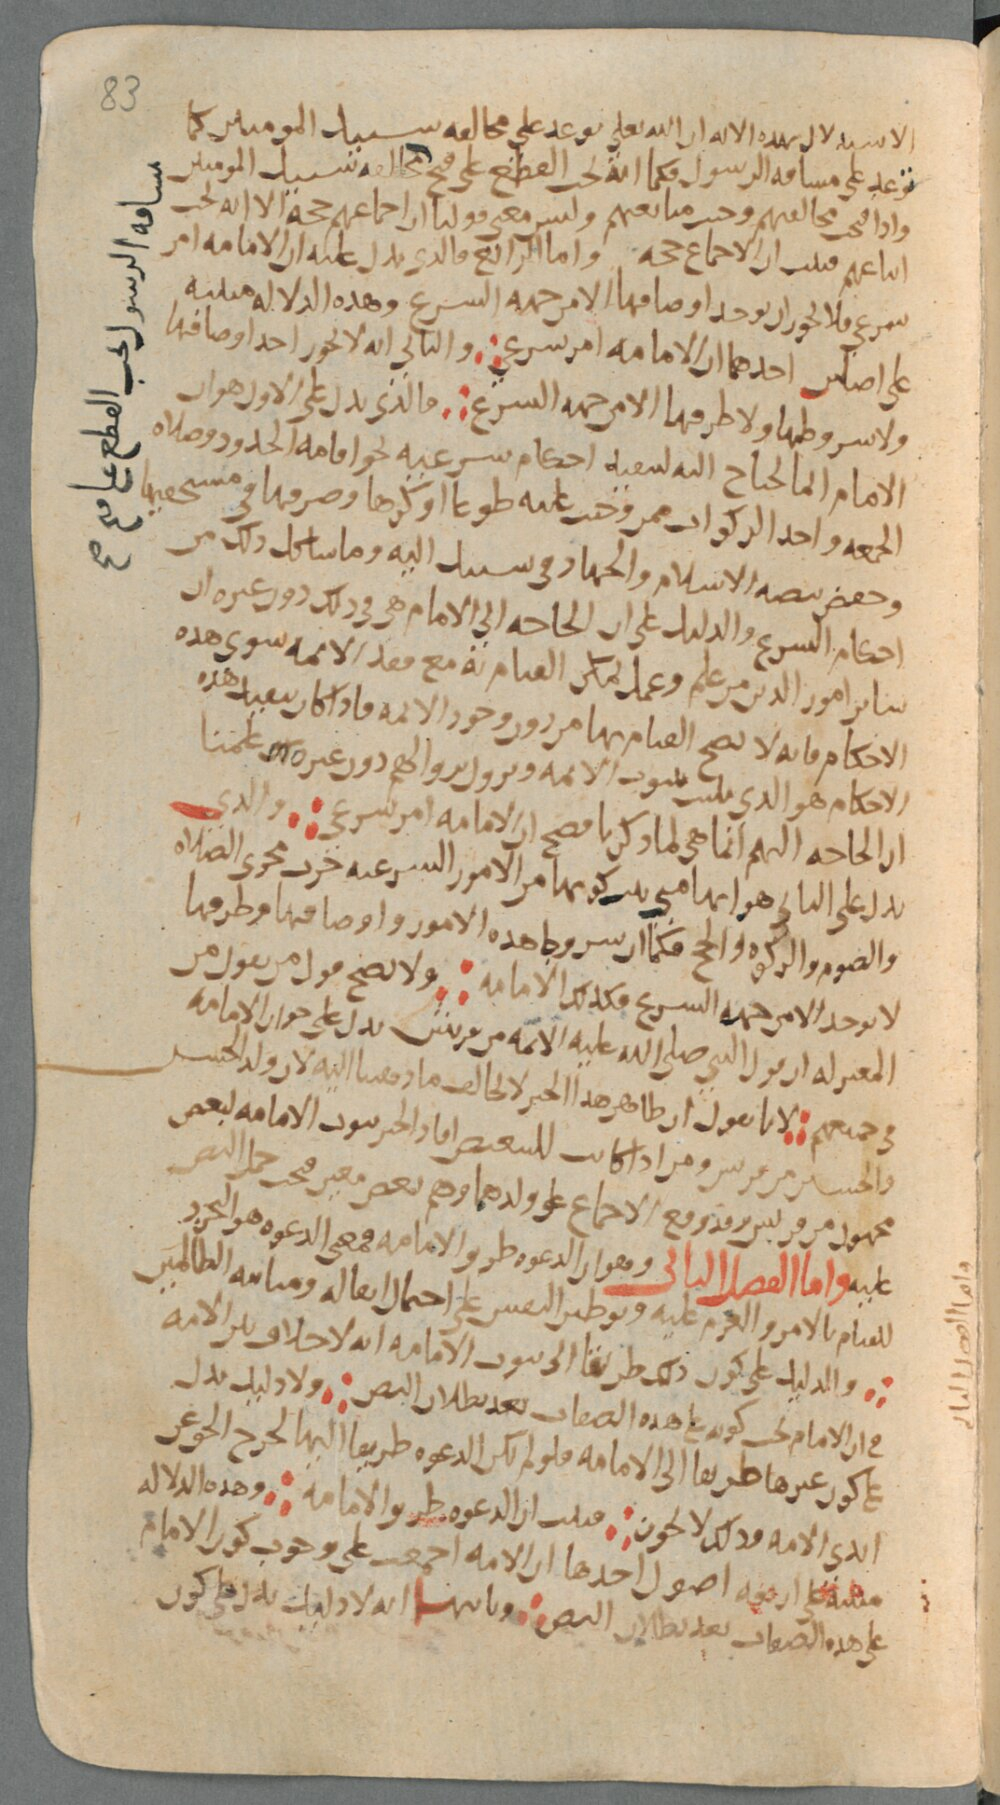 83
الاستدلال بهذه الايه ان الله تعلى توعد على مخالفه سبيل المومنين كما
توعد على مشاقه الرسول فكما انه يجب القطع على قبح مخالفه سبيل المومنين
واذا قبحت مخالفتهم وجبت متابعتهم وليس معنى قولنا ان اجماعهم حجه الا انه يجب
اتباعهم فثبت ان الاجماع حجه واما الرابع فالذي يدل عليه ان الامامه امر
شرعي فلا يجوز ان يوجد اوصافها الا من جهه الشرع وهذه الدلاله مبنيه
على اصلين احدهما ان الامامه امر شرعي والثاني انه لا يجوز اخذ اوصافها
ولا شروطها ولا طرقها الا من جهه الشرع فالذي يدل على الاول هو ان
الامام انما يحتاج اليه لتنفيذ احكام شرعيه نحو اقامه الحدود وصلاه
الجمعه واخذ الزكوات ممن وجبت عليه طوعا او كرها وصرفها في مستحقيها
وحفظ بيضه الاسلام والجهاد في سبيل الله وما شاكل ذلك من
احكام الشرع والدليل على ان الحاجه الى الامام هي في ذلك دون غيره ان
سائر امور الدين من علم وعمل يمكن القيام به مع فقد الائمه سوى هذه
الاحكام فانه لا يصح القيام بها من دون وجود الائمه فاذا كان تنفيذ هذه
الاحكام هو الذي يثبت بثبوت الائمه ويزول بزوالهم دون غيره علمنا
ان الحاجه اليهم انما هي لما ذكرنا فصح ان الامامه امر شرعي والذي
يدل على الثاني هو انها متى ثبت كونها من الامور الشرعيه جرت مجرى الصلاه
والصوم والزكوه والحج فكما ان شروط هذه الامور واوصافها وطرقها
لا يوجد الا من جهه الشرع فكذلك الامامه ولا يصح قول من يقول من
المعتزله ان قول النبي صلى الله عليه الائمه من قريش يدل على جواز الامامه
في جميعهم لانا نقول ان ظاهر هذا الخبر لا يخالف ما ذهبنا اليه لان ولد الحسن
والحسين من قريش ومن اذا كانت للتبعيض افاد الخبر ثبوت الامامه لبعض
مجهول من قريش وقد وقع الاجماع على ولدهما وهم بعض معين فيجب حمل النص
عليه واما الفصل الثاني وهو ان الدعوه طريق الامامه فمعنى الدعوه هو التجرد
للقيام بالامر والعزم عليه وتوطين النفس على احتمال اثقاله ومباينه الظالمين
والدليل على كون ذلك طريقا الى ثبوت الامامه انه لا خلاف بين الامه
في ان الامام يجب كونه على هذه الصفات بعد بطلان النص ولا دليل يدل
على كون غيرها طريقا الى الامامه فلو لم تكن الدعوه طريقا اليها لخرج الحق عن
ايدي الامه وذلك لا يجوز فثبت ان الدعوه طريق الامامه وهذه الدلاله
مبنيه على اربعه اصول احدها ان الامه اجمعت على وجوب كون الامام
على هذه الصفات بعد بطلان النص وثانيها انه لا دليل يدل على كون
مشاقه الرسول يجب القطع على قبح
واما الفصل الثاني